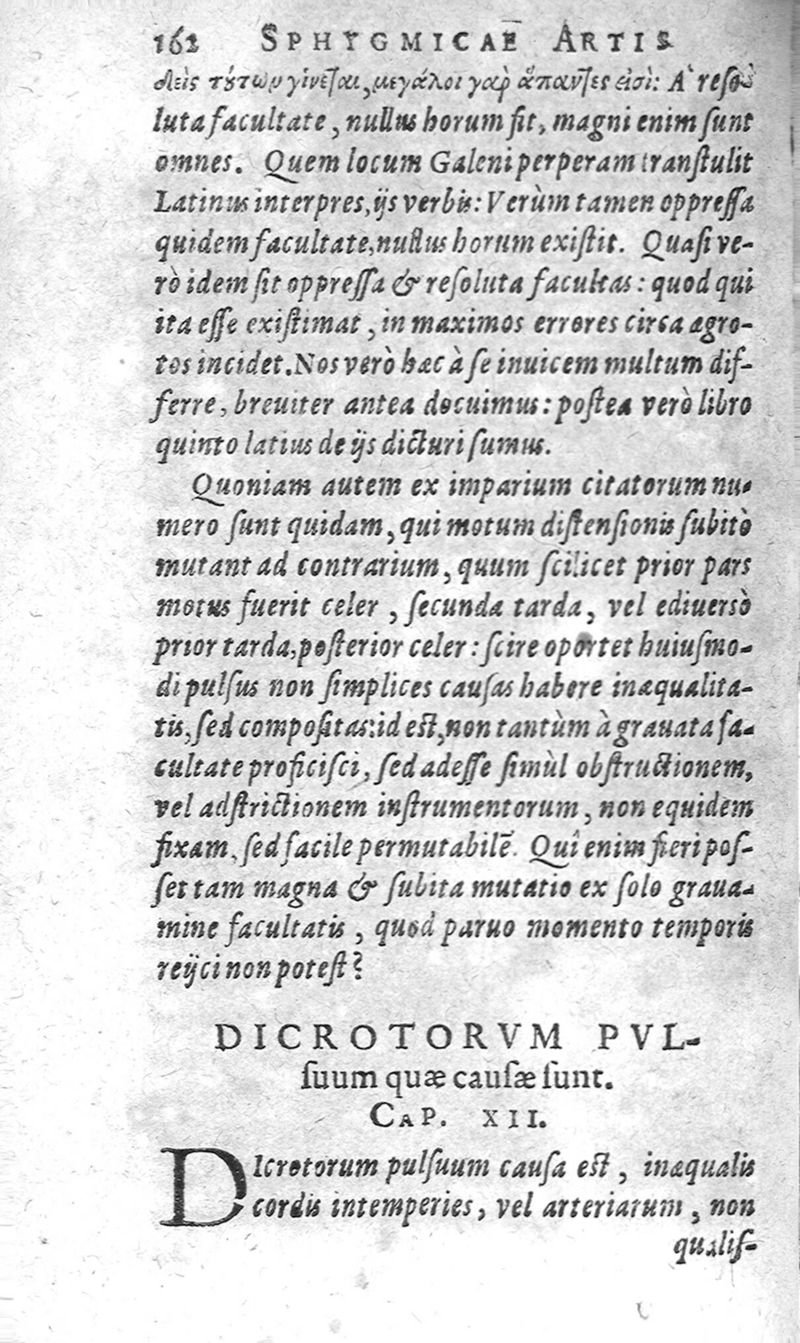 162 SPHYGMICAE ARTIS
δεὶς τούτων γίνεται, μεγάλοι γὰρ ἅπαντες εἰσί: A' reso-
luta facultate, nullus horum fit, magni enim sunt
omnes. Quem locum Galeni perperam transtulit
Latinus interpres, ijs verbis: Verùm tamen oppressa
quidem facultate, nullus horum existit. Quasi ve-
rò idem sit oppressa & resoluta facultas: quod qui
ita esse existimat, in maximos errores circa ægro-
tos incidet. Nos verò hæc à se inuicem multum dif-
ferre, breuiter antea docuimus: postea verò libro
quinto latius de ijs dicturi sumus.
Quoniam autem ex imparium citatorum nu-
mero sunt quidam, qui motum distensionis subitò
mutant ad contrarium, quum scilicet prior pars
motus fuerit celer, secunda tarda, vel ediuersò
prior tarda, posterior celer: scire oportet huiusmo-
di pulsus non simplices causas habere inæqualita-
tis, sed compositas: id est, non tantùm à grauata fa-
cultate proficisci, sed adesse simùl obstructionem,
vel adstrictionem instrumentorum, non equidem
fixam, sed facile permutabilē. Quî enim fieri pos-
set tam magna & subita mutatio ex solo graua-
mine facultatis, quod paruo momento temporis
reijci non potest?
DICROTORVM PVL-
suum quæ causæ sunt.
CAP. XII.
DIcrotorum pulsuum causa est, inæqualis
cordis intemperies, vel arteriarum, non
qualis-